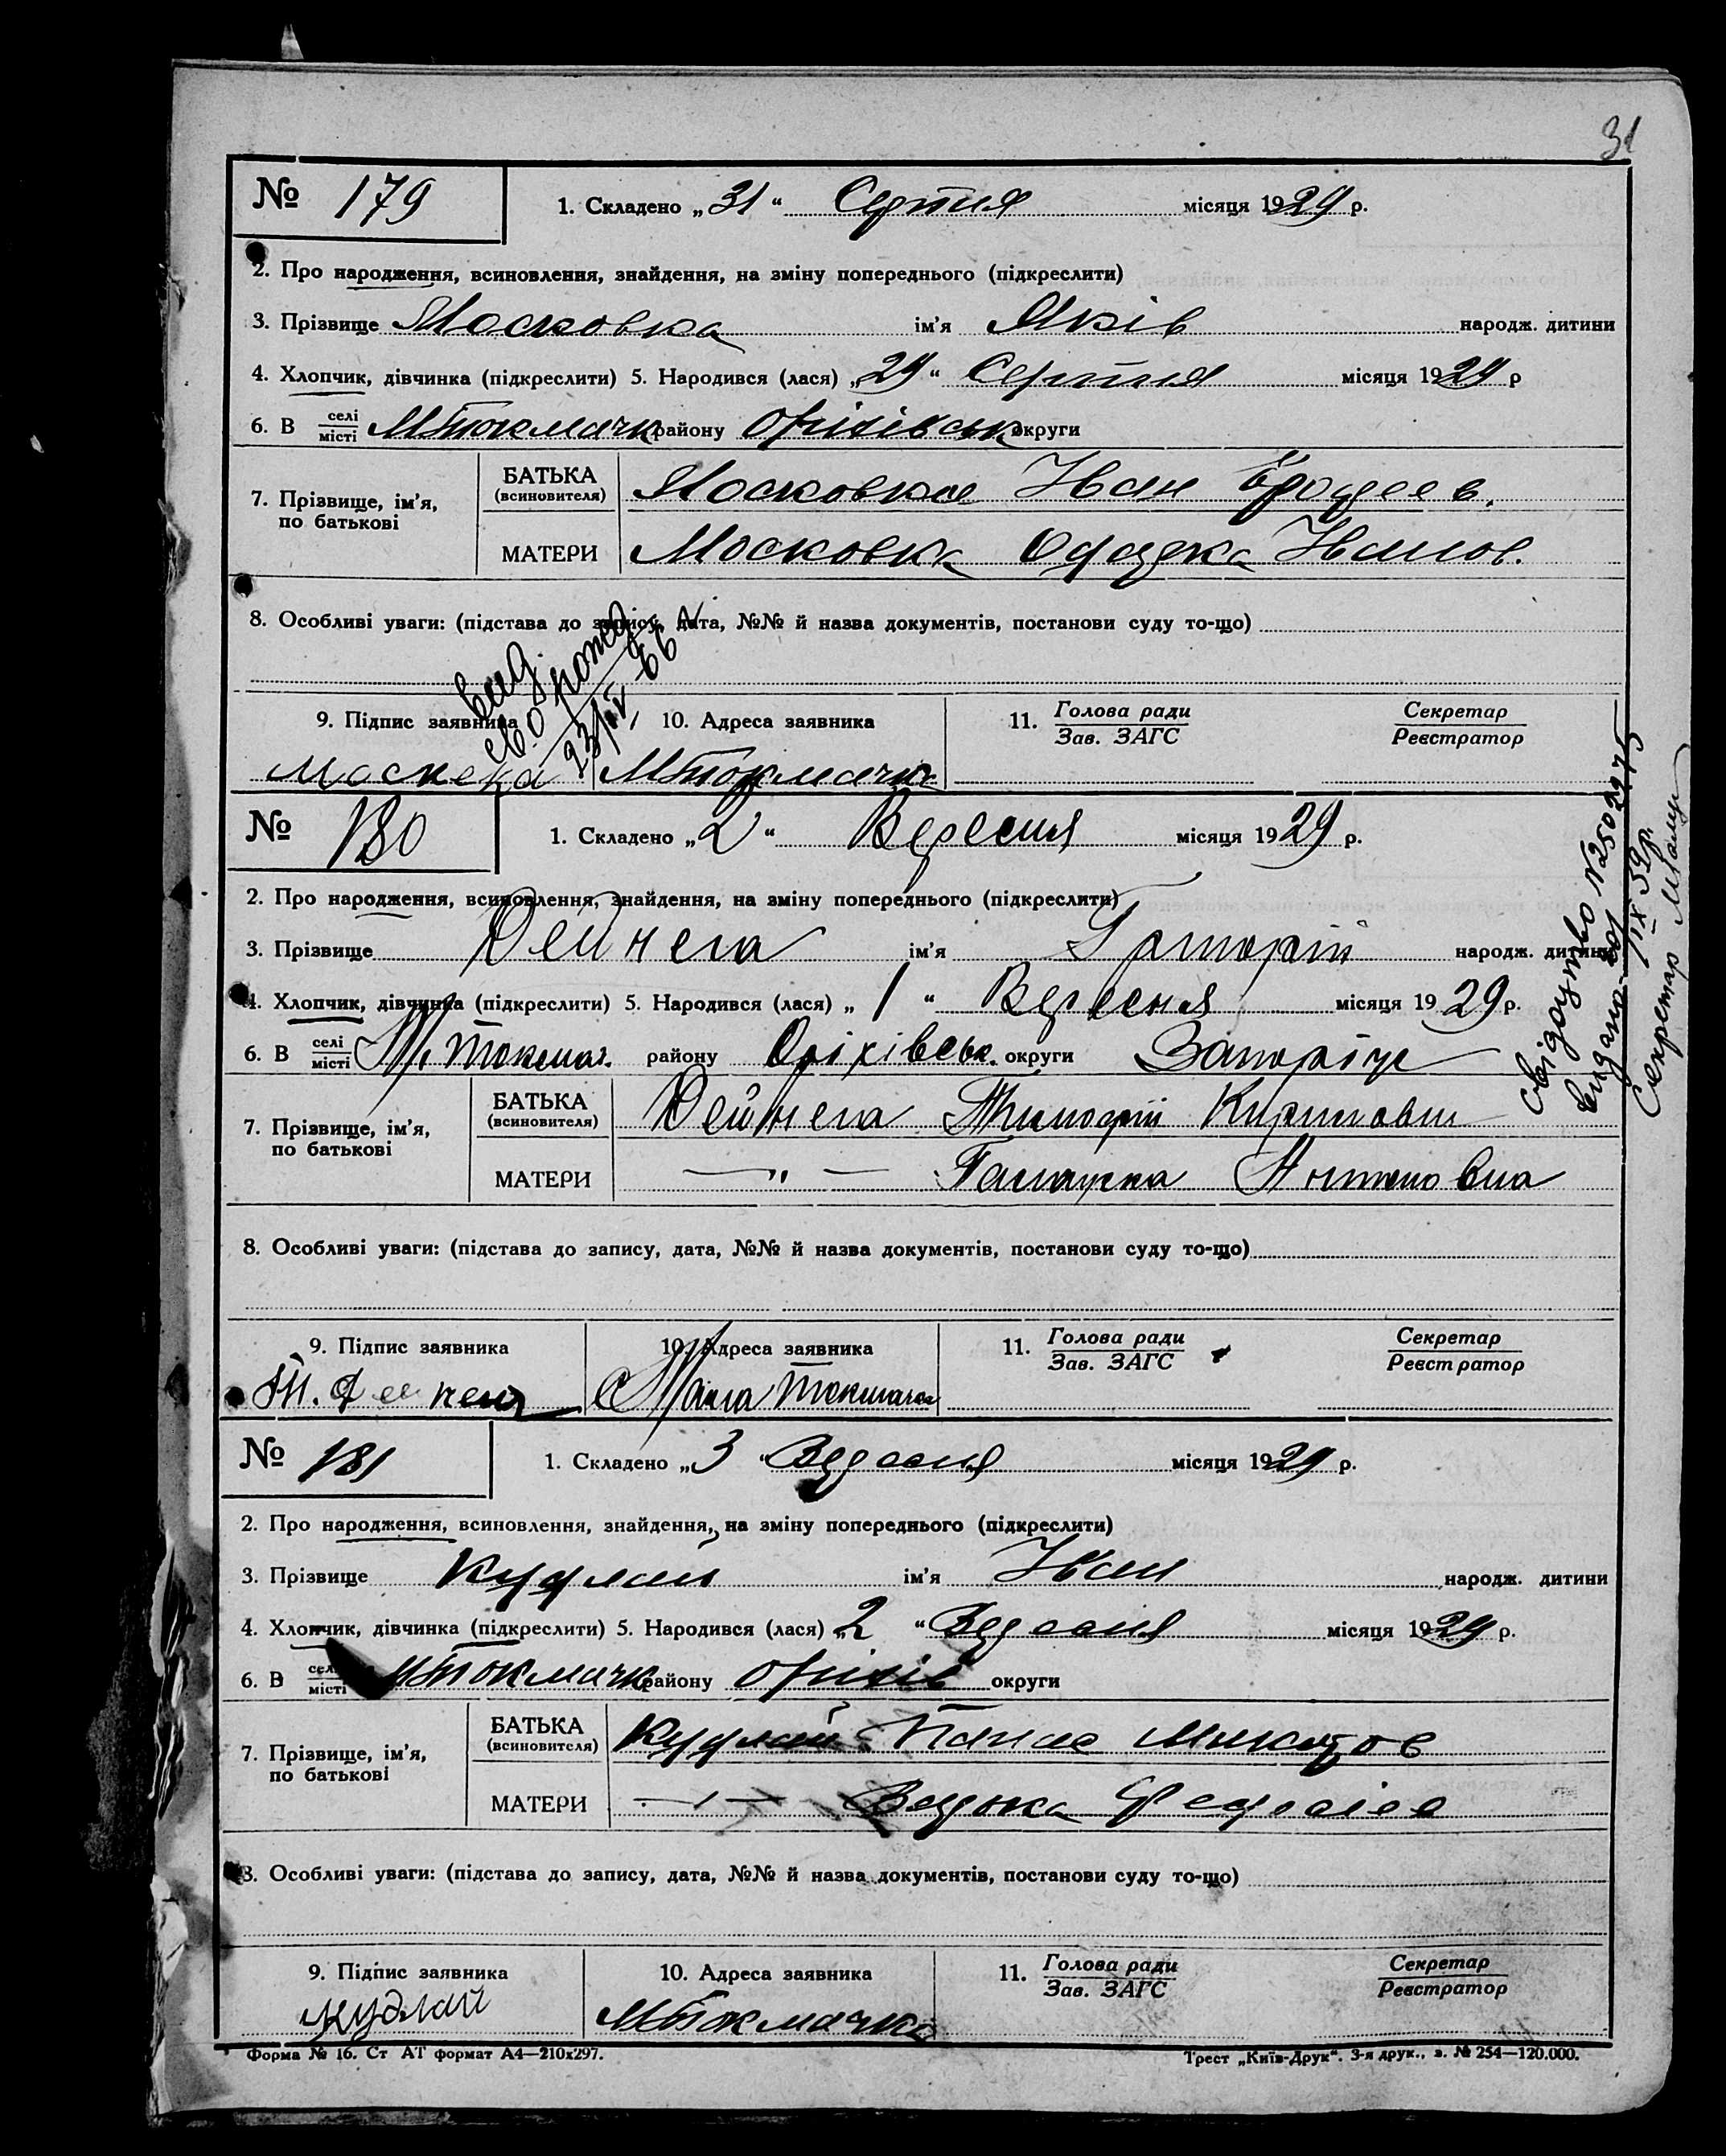 31
№ 179 1. Складено „31“ Серпня місяця 1929 р.
2. Про народження, всиновлення, знайдення, на зміну попереднього (підкреслити)
3. Прізвище Московка ім'я Яків народж. дитини
4. Хлопчик, дівчинка (підкреслити) 5. Народився (лася) „29“ Серпня місяця 1929 р
6. В селі місті МТокмачк району Оріхівськ округи
7. Прізвище, ім'я, по батькові
БАТЬКА (всиновителя) Московка Іван
МАТЕРИ Московка Іванов.
8. Особливі уваги: (підстава до запису, дата, №№ й назва документів, постанови суду то-що)
9. Підпис заявника 10. Адреса заявника 11. Голова ради Зав. ЗАГС Секретар Реєстратор
МТокмачка
№ 180 1. Складено „2“ Вересня місяця 1929 р.
2. Про народження, всиновлення, знайдення, на зміну попереднього (підкреслити)
3. Прізвище Дейнега ім'я Григорій народж. дитини
4. Хлопчик, дівчинка (підкреслити) 5. Народився (лася) „1“ Вересня місяця 1929 р.
6. В селі місті М. Токмач. району Оріхівськ. округи Запоріж
7. Прізвище, ім'я, по батькові
БАТЬКА (всиновителя) Дейнега Тимофій Кирилович
МАТЕРИ —„— Антоновна
8. Особливі уваги: (підстава до запису, дата, №№ й назва документів, постанови суду то-що)
9. Підпис заявника 10. Адреса заявника 11. Голова ради Зав. ЗАГС Секретар Реєстратор
Мала Токмачка
Свідоцтво №25022975
видано 1/IX 39 р.
Секретар
№ 181 1. Складено „3“ Вересня місяця 1929 р.
2. Про народження, всиновлення, знайдення, на зміну попереднього (підкреслити)
3. Прізвище Кудлай ім'я Іван народж. дитини
4. Хлопчик, дівчинка (підкреслити) 5. Народився (лася) „2“ Вересня місяця 1929 р.
6. В селі місті МТокмачк району Оріхів округи
7. Прізвище, ім'я, по батькові
БАТЬКА (всиновителя) Кудлай Панас Микитов
МАТЕРИ —„—
8. Особливі уваги: (підстава до запису, дата, №№ й назва документів, постанови суду то-що)
9. Підпис заявника 10. Адреса заявника 11. Голова ради Зав. ЗАГС Секретар Реєстратор
кудлай МТокмачка
Форма № 16. Ст АТ формат А4—210х297. Трест „Київ-Друк“. 3-я друк., з. № 254—120.000.